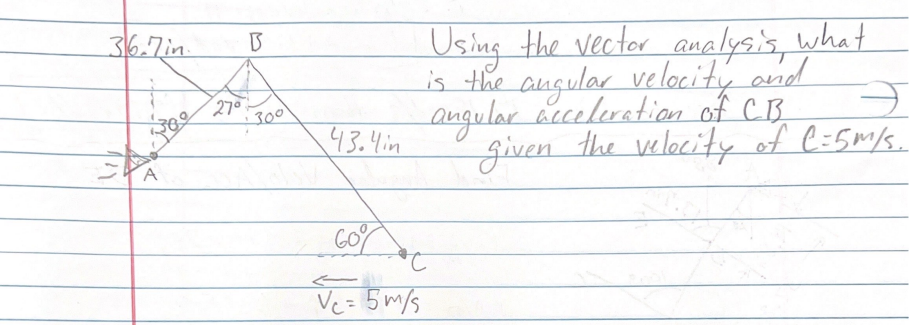 36.7in.
B
Using the vector analysis, what
is the angular velocity and
angular acceleration of CB
given the velocity of C=5m/s.
30°
27°
30°
43.4in
A
60°
C
Vc = 5m/s